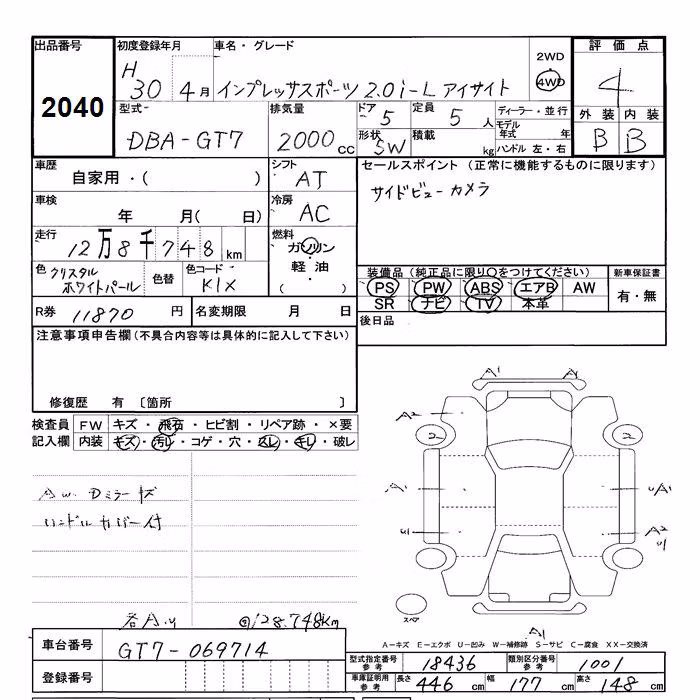 出品番号 初度登録年月 車名・グレード 評価点
2040
H30 4月 インプレッサスポーツ 2.0i-L アイサイト 2WD 4WD 4
型式 排気量 ドア 5 定員 5人 ディーラー・並行 外装 内装
DBA-GT7 2000cc 形状 SW 積載 kg モデル年式 年 ハンドル 左・右 B B
車歴 自家用・( ) シフト AT セールスポイント (正常に機能するものに限ります)
サイドビューカメラ
車検 年 月( 日) 冷房 AC
走行 12万8千748km 燃料 ガソリン・軽油 ( )
色 クリスタルホワイトパール 色替 色コード K1X
装備品 (純正品に限り○をつけてください) 新車保証書
PS PW ABS エアB AW 有・無
SR ナビ TV 本革
R券 11870円 名変期限 月 日 後日品
注意事項申告欄 (不具合内容等は具体的に記入して下さい)
修復歴 有 〔箇所 〕
検査員記入欄 FW キズ・飛石・ヒビ割・リペア跡・×要
内装 キズ・汚れ・コゲ・穴・スレ・キレ・破レ
Aw. Dミラーキズ
ハンドルカバー付
各A.u @128.748km
A1 A1
A2
2 2
A1 uA1
u1 A2
u1
スペア
A1
A=キズ E=エクボ U=凹み W=補修跡 S=サビ C=腐食 XX=交換済
車台番号 GT7-069714
登録番号
型式指定番号 参考 18436 類別区分番号 参考 1001
車庫証明用 参考 長さ 446cm 幅 177cm 高さ 148cm